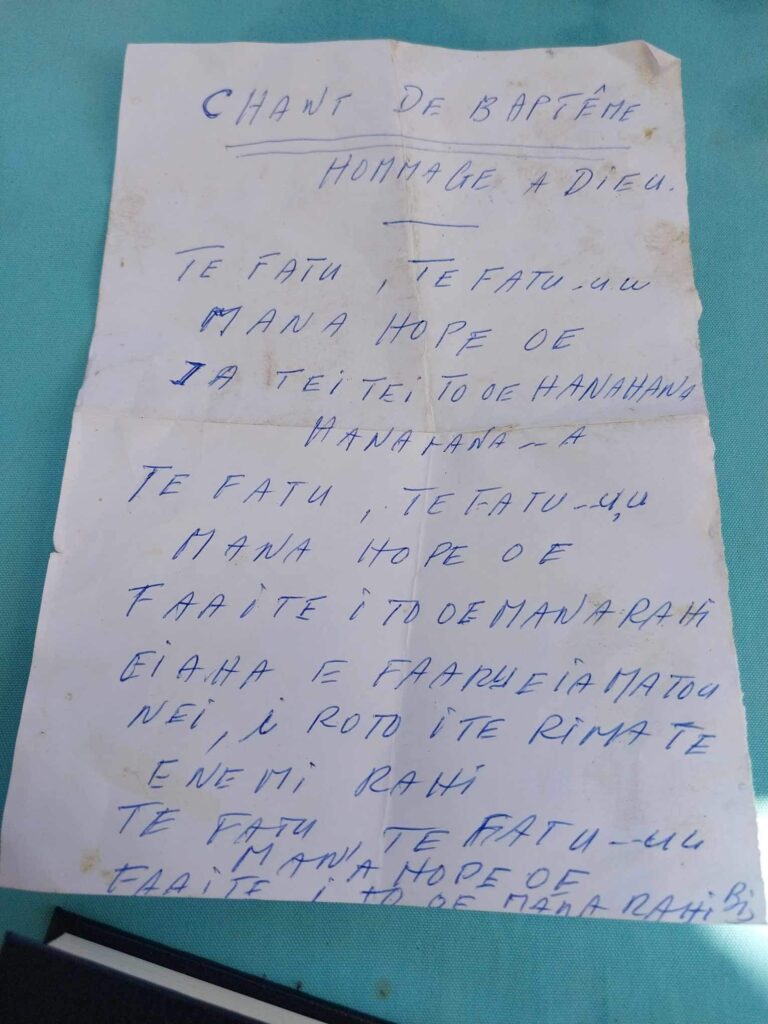 CHANT DE BAPTÊME
HOMMAGE A DIEU.
TE FATU, TE FATU-uu
MANA HOPE OE
IA TEITEI TO OE HANAHANA
HANAHANA--A
TE FATU, TE FATU--uu
MANA HOPE OE
FAAITE i TO OE MANA RAHI
EIAHA E FAARUE IA MATOU
NEI, i ROTO I TE RIMA TE
ENEMI RAHI
TE FATU, TE FATU--uu
MANA HOPE OE
FAAITE i TO OE MANA RAHI Bis